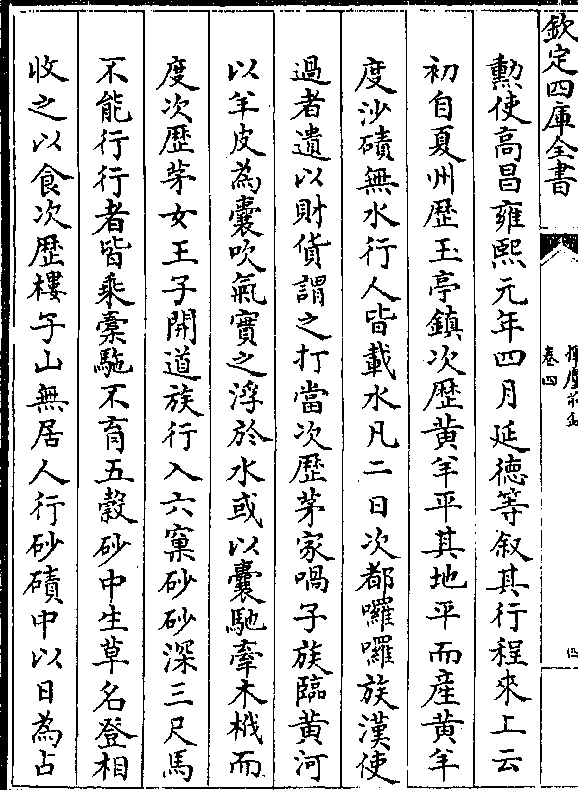 欽定四庫全書
揮麈前錄
卷四
四
勲使髙昌雍熙元年四月延徳等叙其行程來上云
初自夏州歴玉亭鎮次歴黄羊平其地平而産黄羊
度沙磧無水行人皆載水凡二日次都囉囉族漢使
過者遺以財貨謂之打當次歴茅家喎子族臨黄河
以羊皮為囊吹氣實之浮於水或以橐馳牽木栰而
度次歴茅女王子開道族行入六窠砂砂深三尺馬
不能行行者皆乘橐駞不育五穀砂中生草名登相
收之以食次歴樓子山無居人行砂磧中以日為占